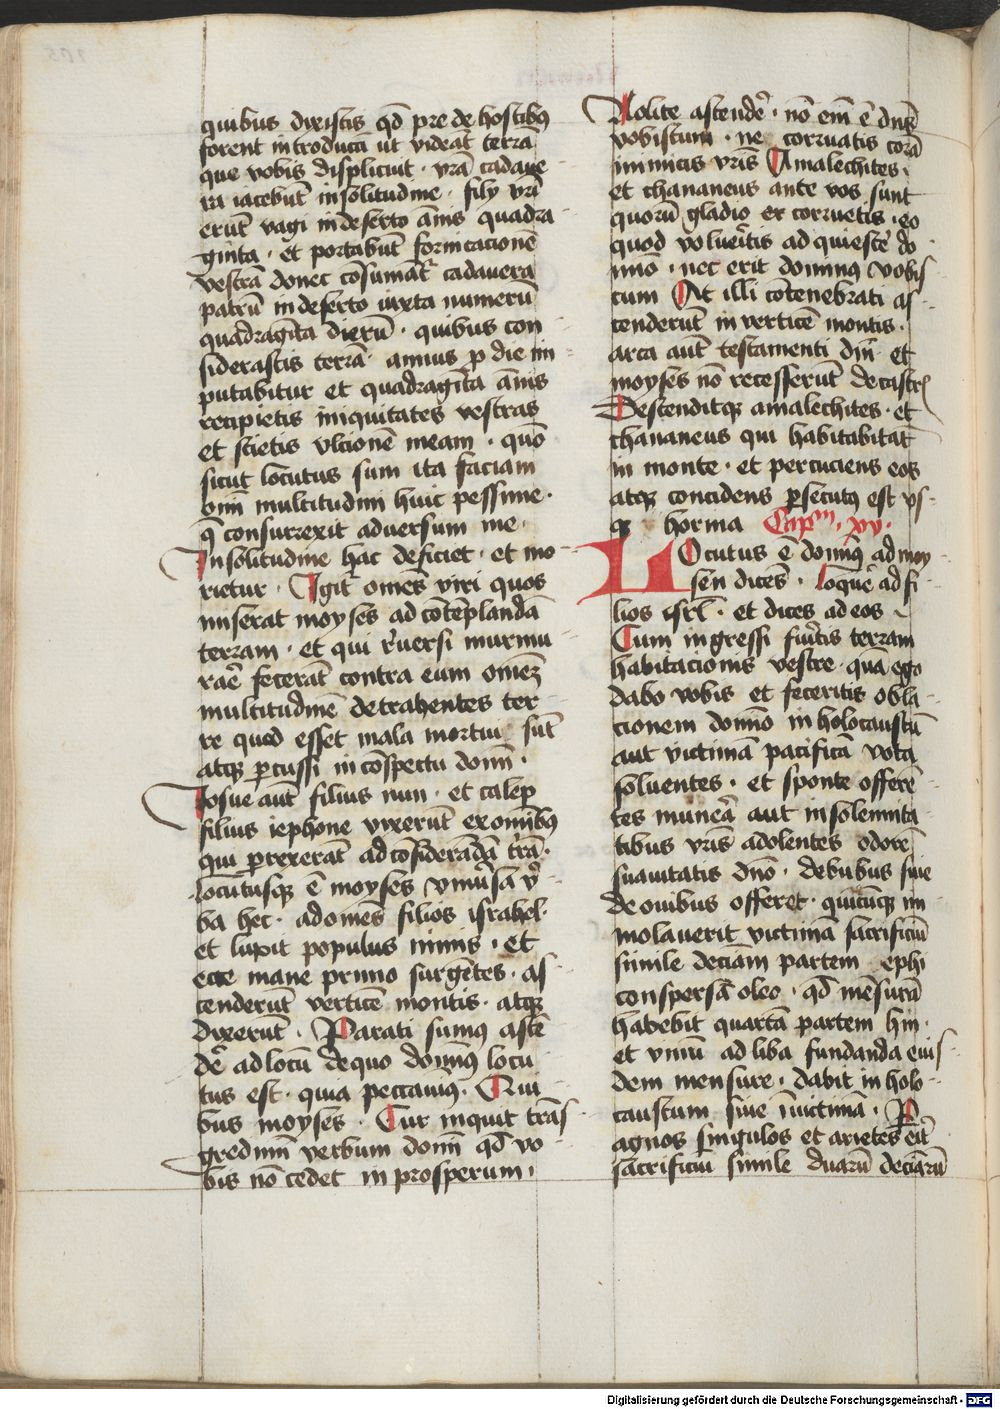 quibus dixistis qd̄ prede hostibꝯ
forent introducā ut videāt terrā
que vobis displicuit · vrā cadave
ra iacebūt in solitudine · fily vrī
erūt vagi in deserto ānis quadra
ginta · et portabūt fornicacionē
vestrā donec cōsumāt᷑ cadavera
patrū in deserto iuxta numerū
quadragīta dierū · quibus con
siderastis terrā · annus ꝑ die im
putabitur et quadragīta ānis
recipietis iniquitates vestras
et scietis ulcionē meam · quō
sicut locutus sum ita faciam
om̄i multitudini huic pessime ·
q̄ consurrexit adversum me ·
In solitudine hac deficiet · et mo
rietur · Igit᷑ omēs viri quos
miserat moyses ad cōtēplandā
terram · et qui r̄versi murmu
rar̄e fecerāt contra eum omēꝫ
multitudinē detrahentes ter
re quod esset mala mortui sūt
atqꝫ ꝑcussi in cōspectu domī ·
Iosue aūt filius nun · et caleph
filius iephone vixerūt ex omībꝯ
qui ꝑrexerāt ad cōsideradā t̄rā ·
Locutusqꝫ ē moyses univ̄sa v̄
ba hec · ad omēs filios israhel ·
et luxit populus nimis · et
ecce mane primo surgētes · as
cenderūt verticē montis · atqꝫ
dixerūt · Parati sumꝯ ascē
de᷑ ad locū de quo domīꝯ locu
tus est · quia peccavimꝯ · Qui
bus moyses · Cur inquit trās
gredimī verbum domī qd̄ vo
bis nō cedet in prosperum ·
Nolite ascende᷑ · nō eīm ē dn̄s
vobiscum · ne corruatis corā
inimicis vrīs Amalechites ·
et chananeus ante vos sunt
quorū gladio ex corruetis · eo
quod volue᷑tis ad quiesce᷑ do
mīo · nec erit dominꝯ vobis
cum At illi cōtenebrati as
cenderūt in verticē montis ·
arca aūt testamenti dn̄i et
moyses nō recesserūt de castris
Descenditqꝫ amalechites · et
chananeus qui habitabitāt
in monte · et percuciens eos
atqꝫ concidens ꝑsecutꝯ est us
qꝫ horma Capᵐ · xv ·
Locutus ē domīꝯ ad moy
sen dicēs · loque᷑ ad fi
lios isrl̄ · et dices ad eos
Cum ingressi fue᷑tis terram
habitacionis vestre · quā ego
dabo vobis et feceritis obla
cionem domīo in holocaustū
aut victimā pacificā vota
soluentes · et sponte offerē
tes mune᷑a aut in solemnita
tibus vrīs adolentes odorē
suavitatis dn̄o · de bubus sive
de ovibus offeret · quicūqꝫ im
molaverit victimā sacrificiū
simile deciam partem ephi
conspersā oleo · qd̄ mēsurā
habebit quartā partem hin ·
et vinū ad liba fundanda eius
dem mensure · dabit in holo
caustum sive ī victimā · P
agnos singulos et arietes eīt
sacrificiū simile duarū deciarū
Digitalisierung gefördert durch die Deutsche Forschungsgemeinschaft · DFG